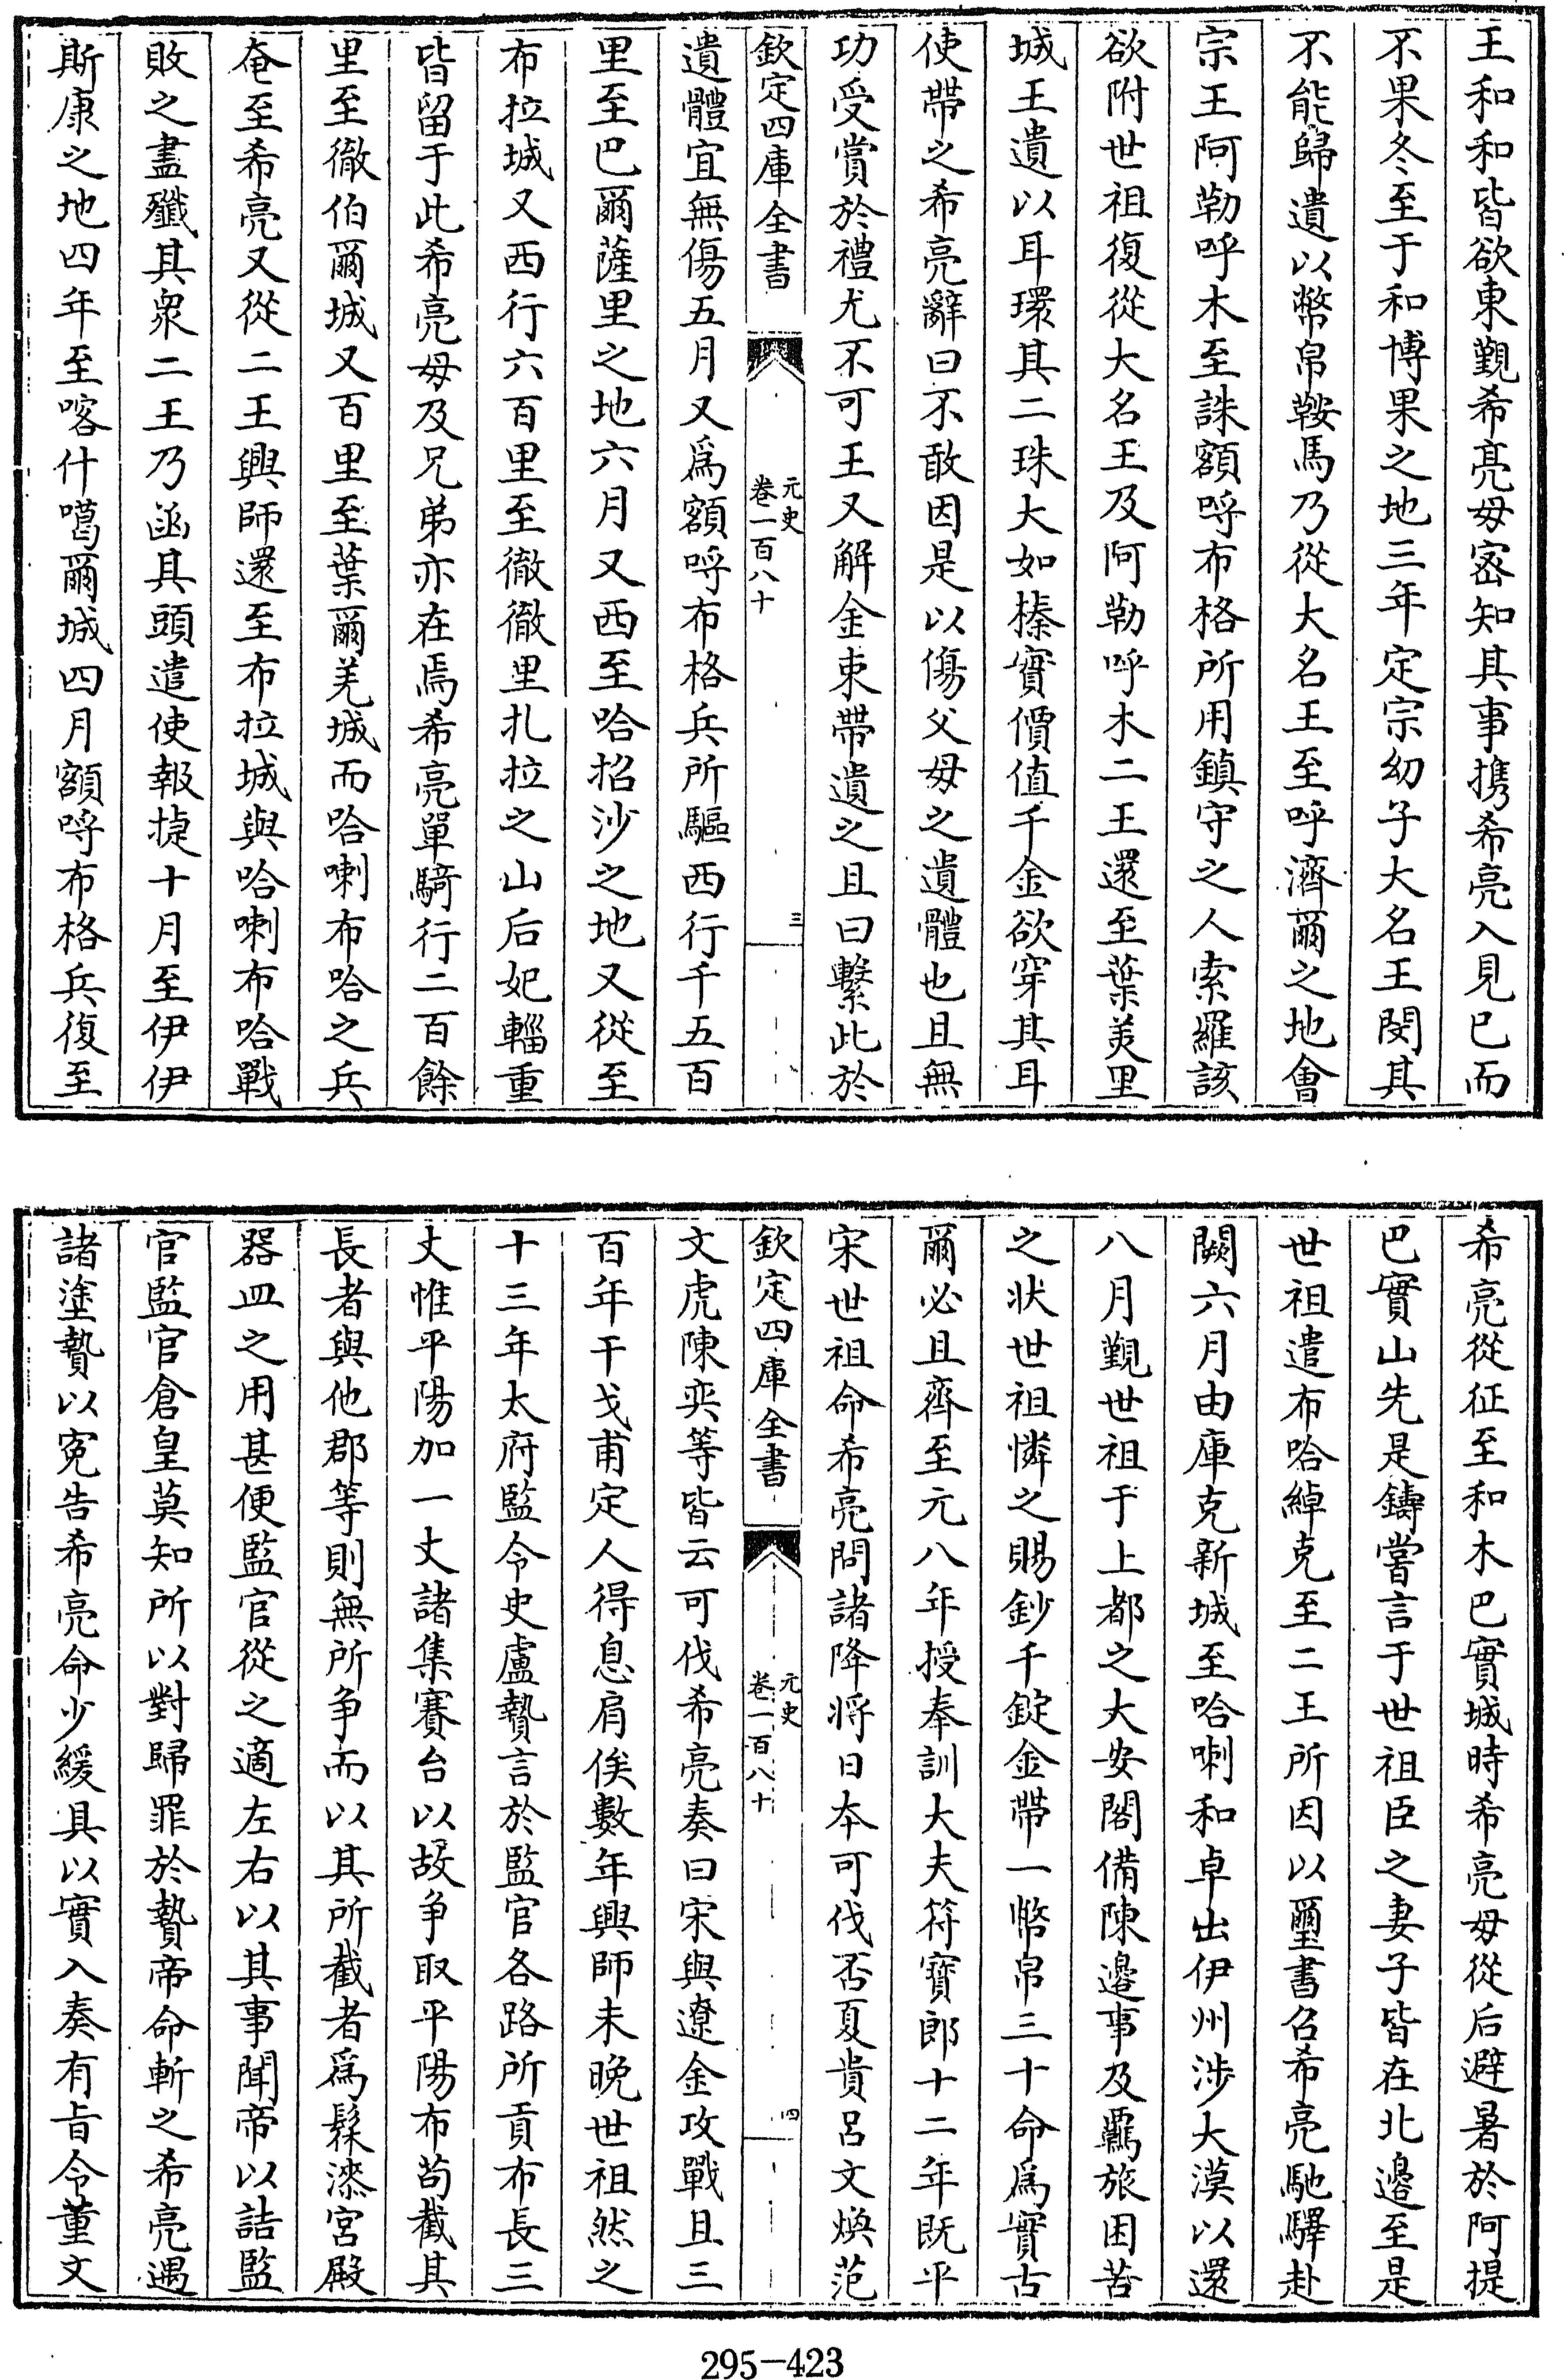 王和和皆欲東覲希亮母密知其事携希亮入見已而
不果冬至于和博果之地三年定宗幼子大名王閔其
不能歸遺以幣帛鞍馬乃從大名王至呼濟爾之地會
宗王阿勒呼木至誅額哷布格所用鎮守之人索羅該
欲附世祖復從大名王及阿勒呼木二王還至葉羙里
城王遺以耳環其二珠大如榛實價值千金欲穿其耳
使帶之希亮辭曰不敢因是以傷父母之遺體也且無
功受賞於禮尤不可王又解金束帶遺之且曰繫此於
欽定四庫全書
元史
卷一百八十
三
遺體宜無傷五月又爲額哷布格兵所驅西行千五百
里至巴爾薩里之地六月又西至哈招沙之地又從至
布拉城又西行六百里至徹徹里扎拉之山后妃輜重
皆留于此希亮母及兄弟亦在焉希亮單騎行二百餘
里至徹伯爾城又百里至葉爾羌城而哈喇布哈之兵
奄至希亮又從二王興師還至布拉城與哈喇布哈戰
敗之盡殲其衆二王乃函其頭遣使報捷十月至伊伊
斯康之地四年至喀什噶爾城四月額哷布格兵復至
希亮從征至和木巴實城時希亮母從后避暑於阿提
巴實山先是鑄嘗言于世祖臣之妻子皆在北邊至是
世祖遣布哈綽克至二王所因以璽書召希亮馳驛赴
闕六月由庫克新城至哈喇和卓出伊州涉大漠以還
八月覲世祖于上都之大安閣備陳邊事及羈旅困苦
之狀世祖憐之賜鈔千錠金帶一幣帛三十命爲實古
爾必且齊至元八年授奉訓大夫符寶郎十二年既平
宋世祖命希亮問諸降将日本可伐否夏貴呂文煥范
欽定四庫全書
元史
卷一百八十
四
文虎陳奕等皆云可伐希亮奏曰宋與遼金攻戰且三
百年干戈甫定人得息肩俟數年興師未晚世祖然之
十三年太府監令史盧贄言於監官各路所貢布長三
丈惟平陽加一丈諸集賽台以故争取平陽布苟截其
長者與他郡等則無所争而以其所截者爲髹漆宮殿
器皿之用甚便監官從之適左右以其事聞帝以詰監
官監官倉皇莫知所以對歸罪於贄帝命斬之希亮遇
諸塗贄以寃告希亮命少緩具以實入奏有旨令董文
295-423